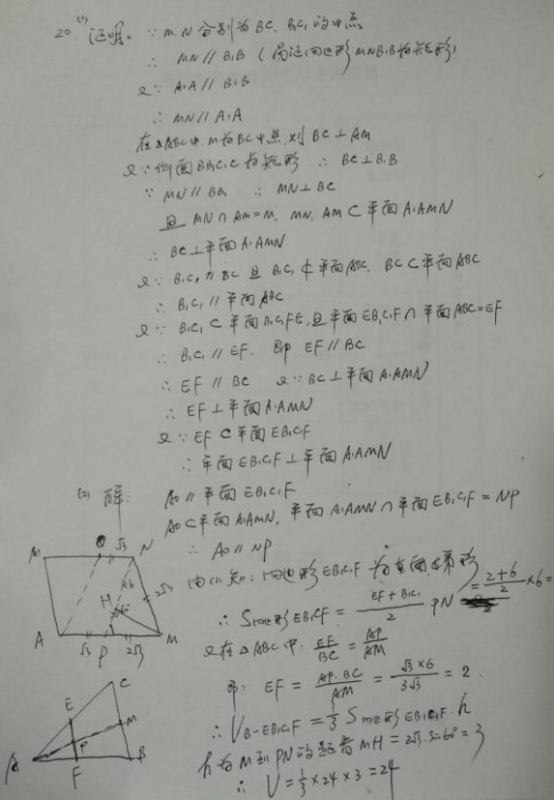 20. (1) 证明。∵ M.N分别为BC. B₁C₁的中点
∴ MN∥B₁B
又∵ A₁A∥B₁B
∴ MN∥A₁A
在△ABC中. M为BC中点,则 BC⊥AM
又∵侧面BB₁C₁C为矩形 ∴ BC⊥B₁B
∵ MN∥BB₁ ∴ MN⊥BC
且 MN∩AM=M. MN, AM⊂平面A₁AMN
∴ BC⊥平面A₁AMN
又∵ B₁C₁∥BC 且 B₁C₁⊄平面ABC. BC⊂平面ABC
∴ B₁C₁∥平面ABC
又∵ B₁C₁⊂平面B₁C₁FE,且平面EB₁C₁F∩平面ABC=EF
∴ B₁C₁∥EF. 即 EF∥BC
∴ EF∥BC 又∵ BC⊥平面A₁AMN
∴ EF⊥平面A₁AMN
又∵ EF⊂平面EB₁C₁F
∴ 平面EB₁C₁F⊥平面A₁AMN
(2) 解: AO∥平面EB₁C₁F
AO⊂平面A₁AMN, 平面A₁AMN∩平面EB₁C₁F=NP
∴ AO∥NP
由(1)知: 四边形EB₁C₁F为
∴ S四边形EB₁C₁F = (EF+B₁C₁)/2 PN = (2+6)/2×6=
又在△ABC中. EF/BC = AP/AM
即: EF = AP·BC/AM = √3×6/3√3 = 2.
∴ V B-EB₁C₁F = 1/3 S四边形EB₁C₁F·h
h为M到PN的距离MH=2√3·sin60°=3
∴ V=1/3×24×3=24
A₁ O √3 N
H 6 60° 2√3
A √3 P 2√3 M
C
E M
P
A F B